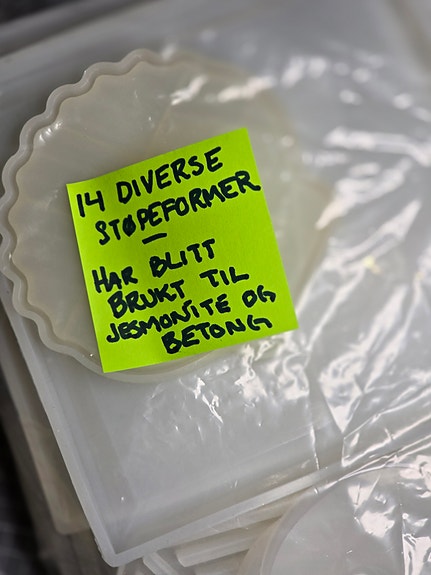 14 DIVERSE
STØPEFORMER
HAR BLITT
BRUKT TIL
JESMONITE OG
BETONG